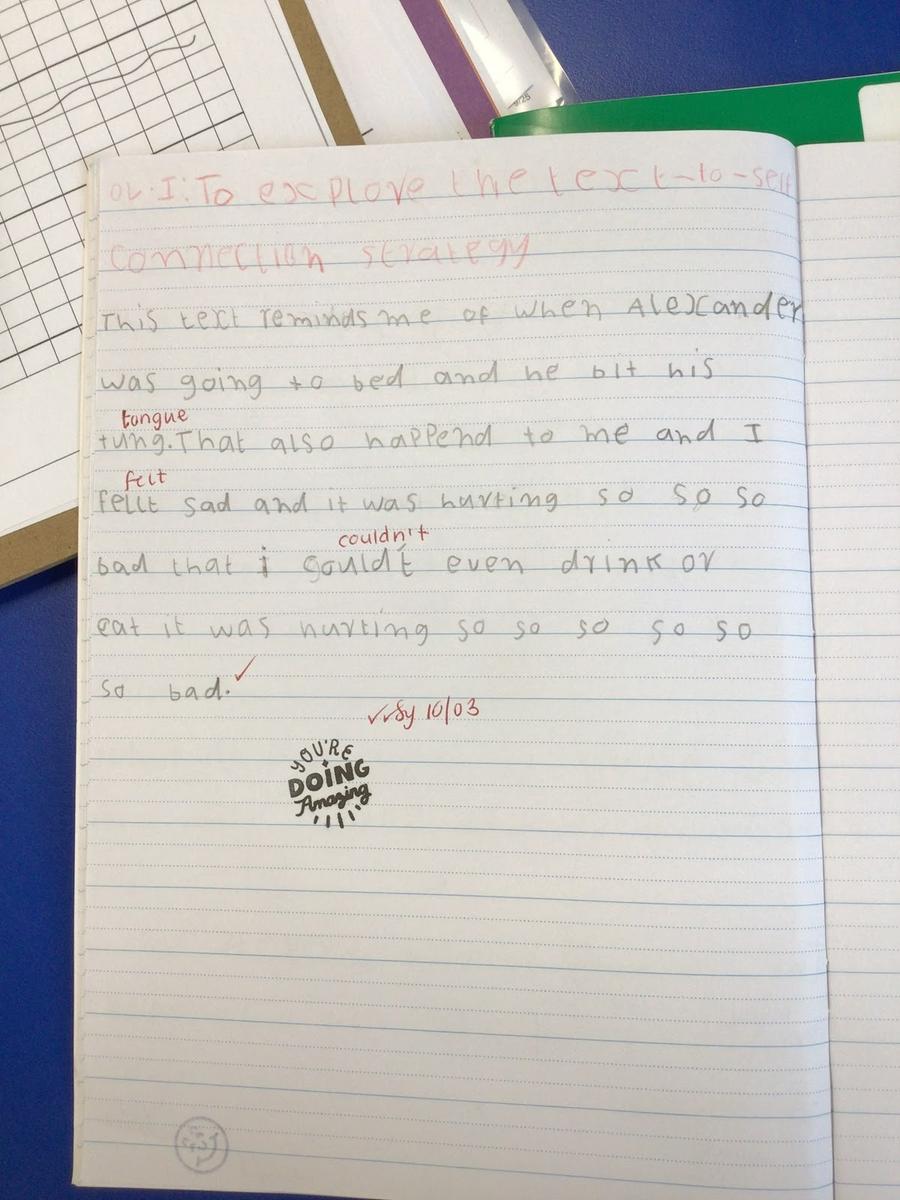 9/25
OL.I: To explore the text-to-self
connection strategy
This text reminds me of when Alexander
was going to bed and he bit his
tongue
tung. That also happend to me and I
felt
fellt sad and it was hurting so so so
couldn't
bad that i couldt even drink or
eat it was hurting so so so so so
so bad. ✓
✓✓Sy 10/03
YOU'RE
DOING
Amazing